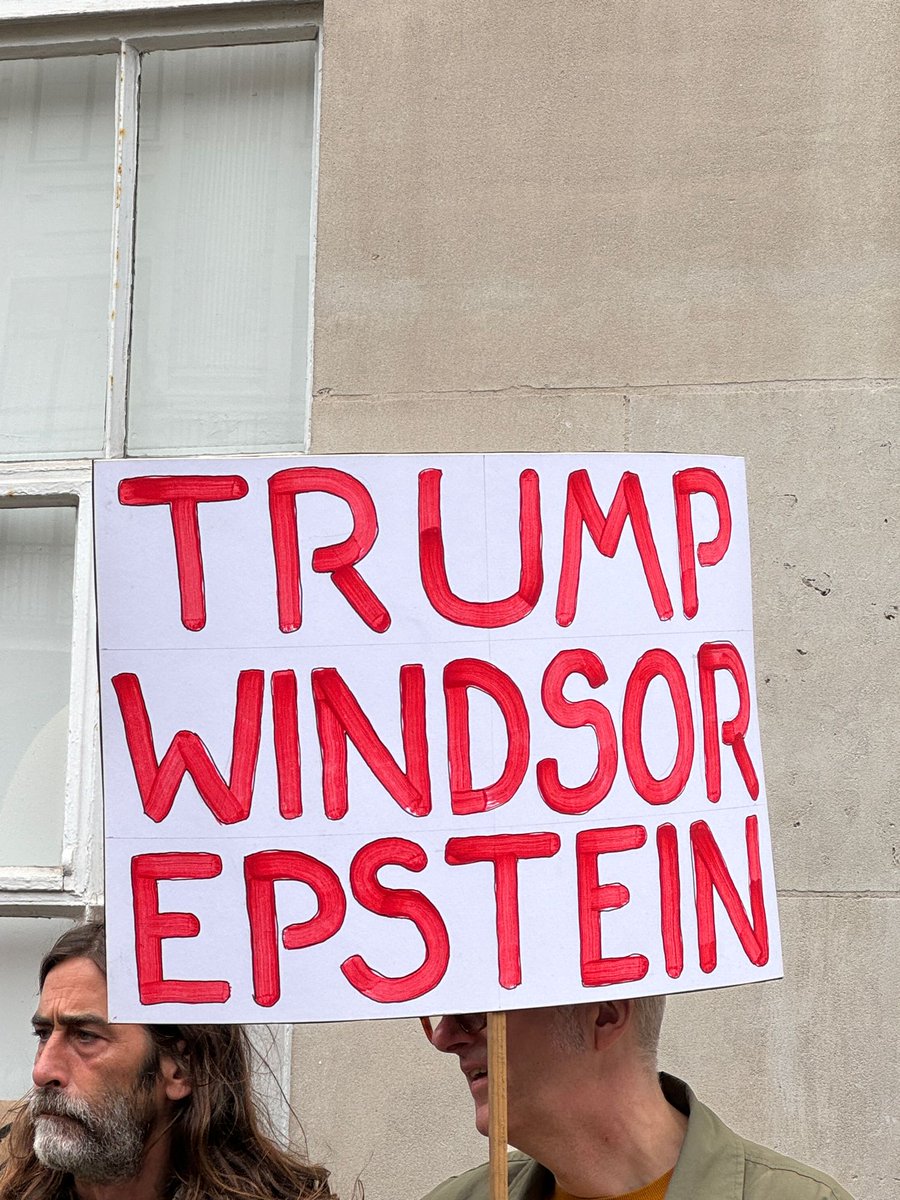 TRUMP
WINDSOR
EPSTEIN